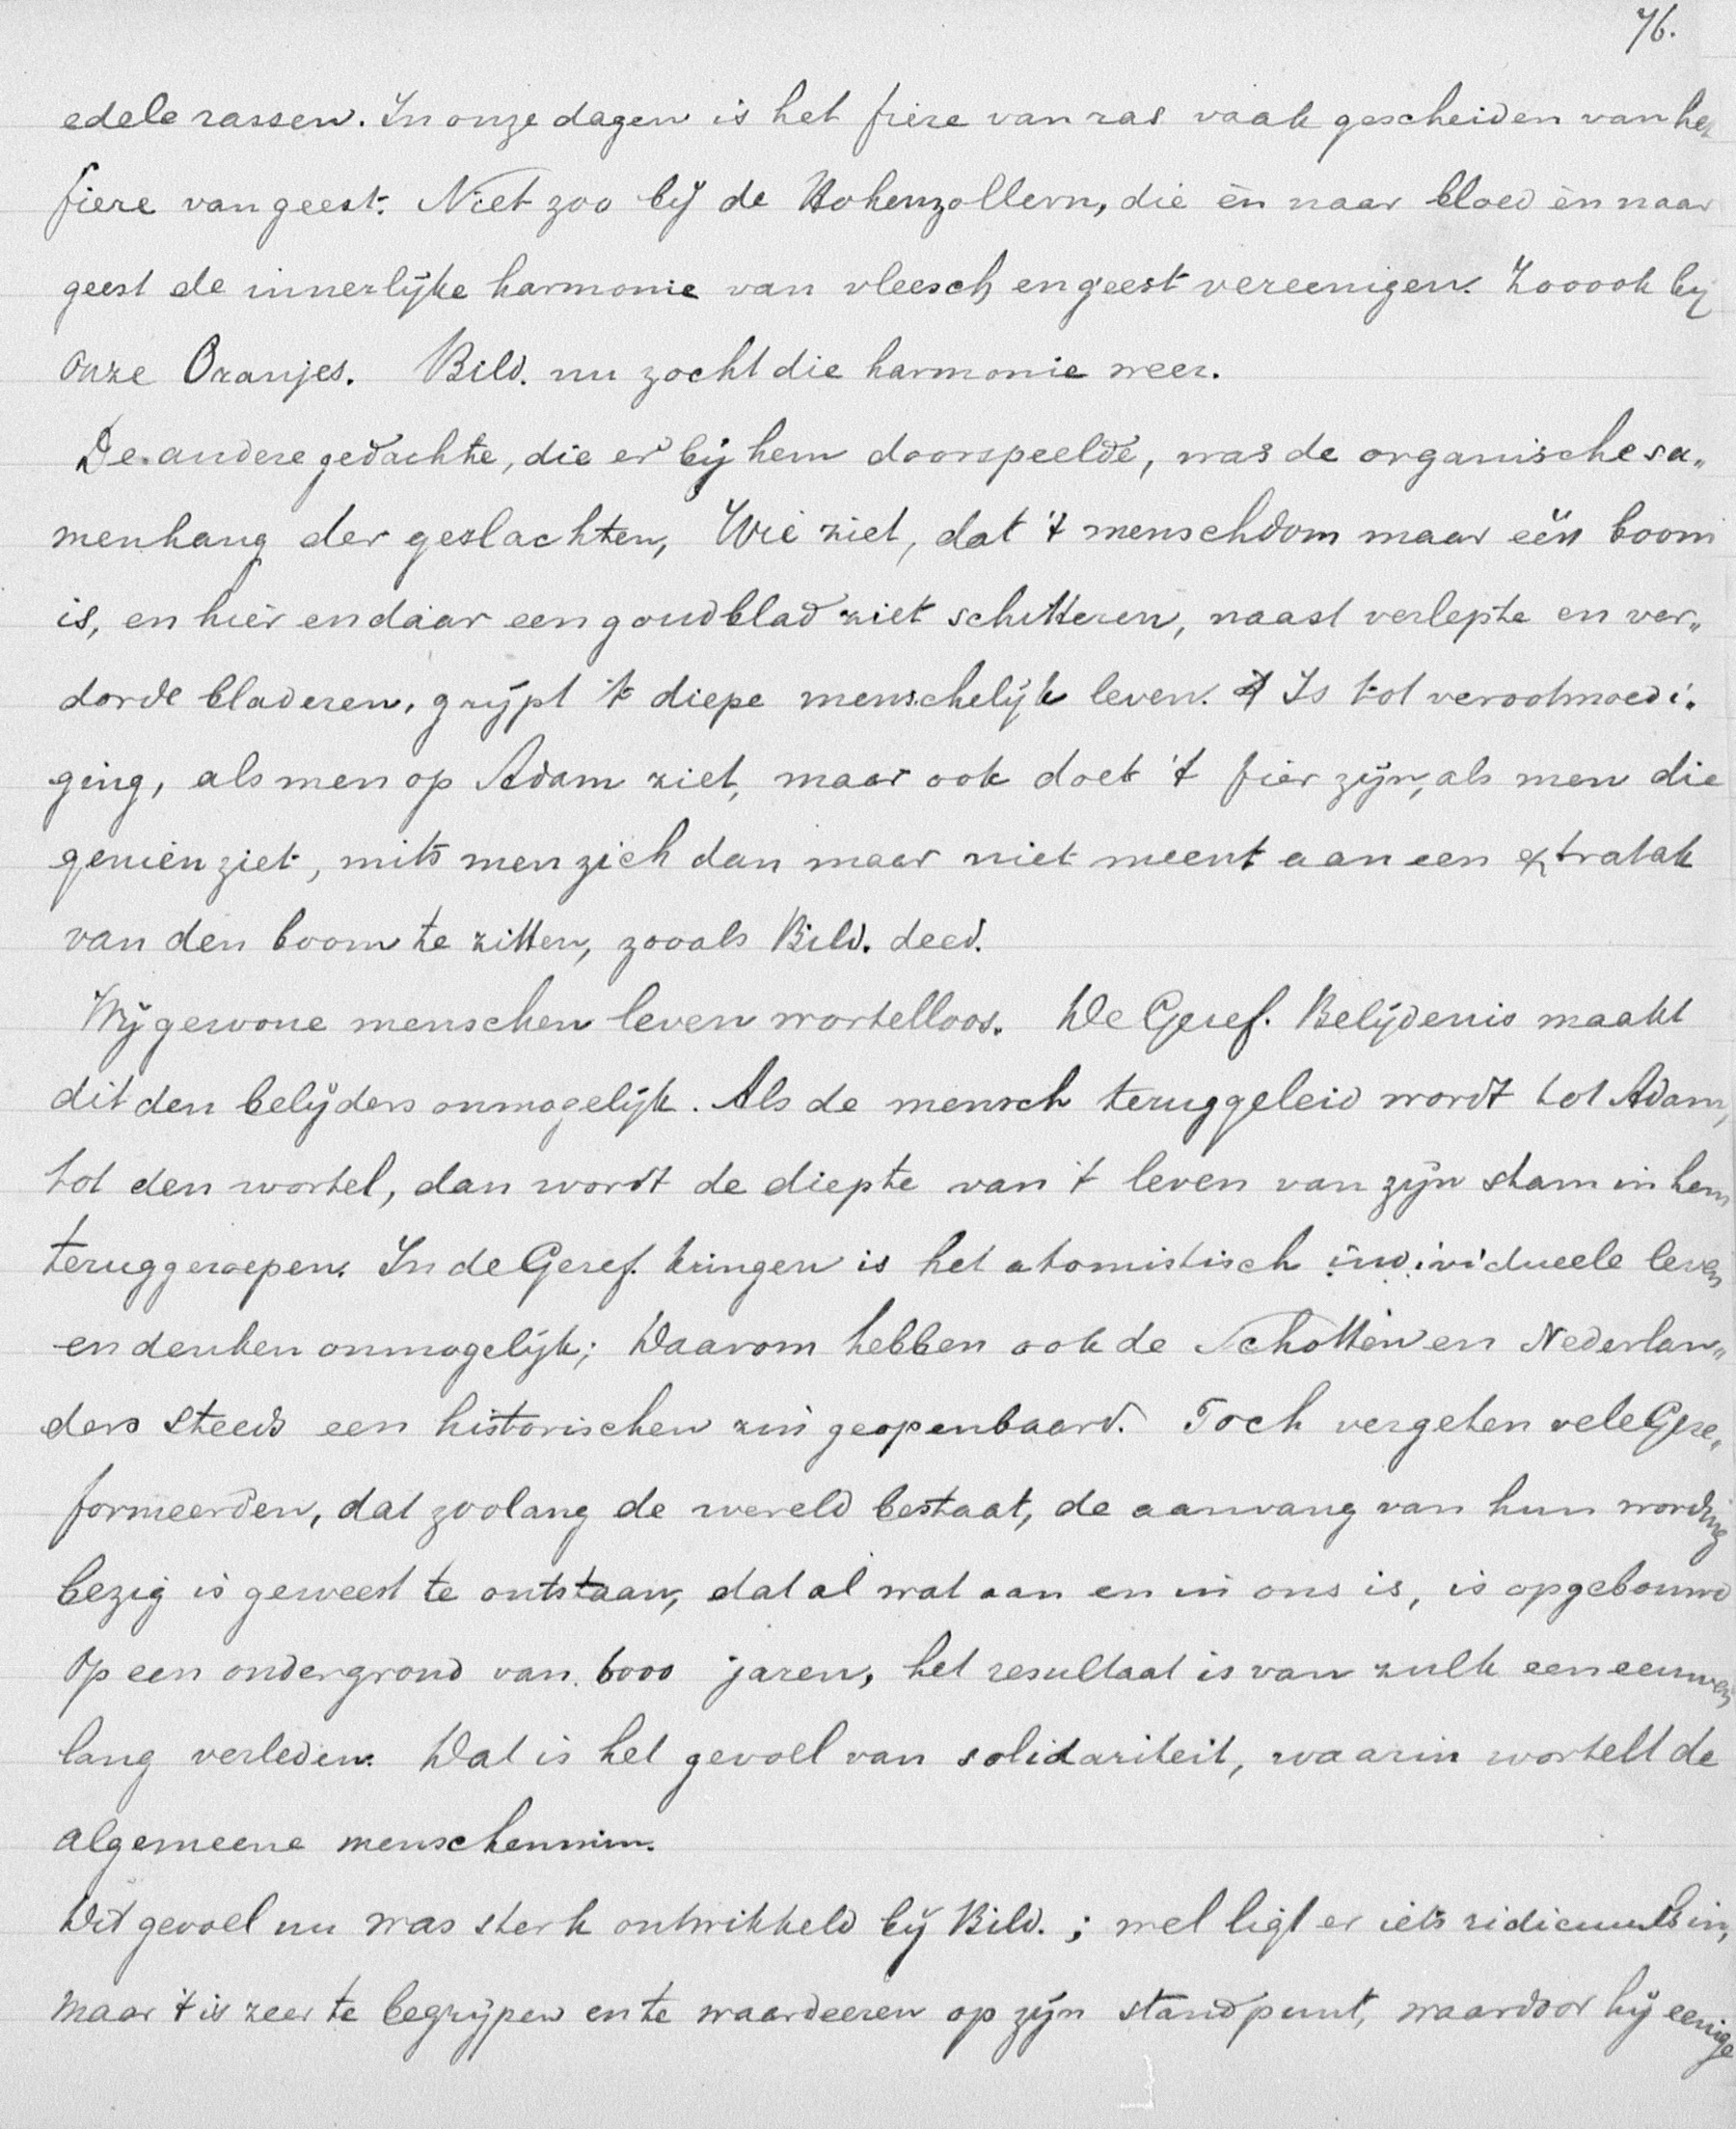 76.
edele rassen. In onze dagen is het fiere van ras vaak gescheiden van het
fiere van geest. Niet zoo bij de Hohenzollern, die èn naar bloed èn naar
geest de innerlijke harmonie van vleesch en geest vereenigen. Zoo ook bij
onze Oranjes. Bild. nu zocht die harmonie weer.
De andere gedachte, die er bij hem doorspeelde, was de organische sa„
menhang der geslachten, Wie ziet, dat 't menschdom maar één boom
is, en hier en daar een goudblad ziet schitteren, naast verlepte en ver„
dorde bladeren, grijpt 't diepe menschelijk leven. Is tot verootmoedi„
ging, als men op Adam ziet, maar ook doet 't fier zijn, als men die
genieën ziet, mits men zich dan maar niet meent aan een extra tak
van den boom te zitten, zooals Bild. deed.
Wij gewone menschen leven wortelloos. De Geref. Belijdenis maakt
dit den belijders onmogelijk. Als de mensch teruggeleid wordt tot Adam,
tot den wortel, dan wordt de diepte van 't leven van zijn stam in hem
teruggeroepen. In de Geref. kringen is het atomistisch individueele leven
en denken onmogelijk; Daarom hebben ook de Schotten en Nederlan„
ders steeds een historischen zin geopenbaard. Toch vergeten vele Gere„
formeerden, dat zoolang de wereld bestaat, de aanvang van hun wording
bezig is geweest te ontstaan, dat al wat aan en in ons is, is opgebouwd
op een ondergrond van 6000 jaren, het resultaat is van zulk een eeuwen
lang verleden. Dat is het gevoel van solidariteit, waarin wortelt de
algemeene menschenmin.
Dit gevoel nu was sterk ontwikkeld bij Bild.; wel ligt er iets ridicuuls in,
maar 't is zeer te begrijpen en te waardeeren op zijn standpunt, waardoor hij eenige